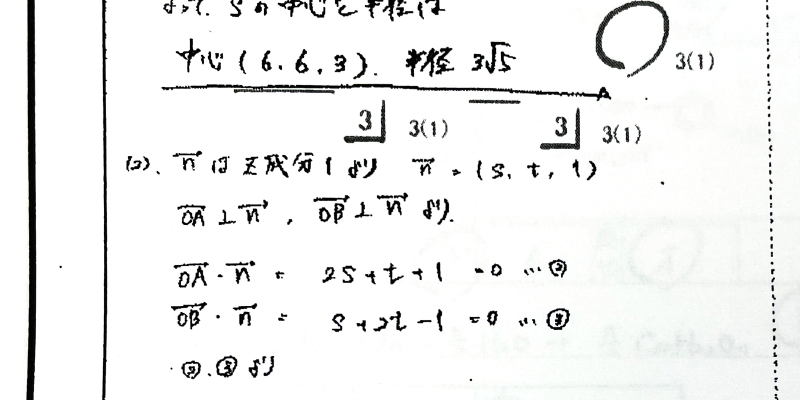 よって、Sの中心と半径は
中心 (6, 6, 3). 半径 3√5
3(1)
3 3(1) 3 3(1)
(2). n→ は z成分 1 より n→ = (s, t, 1)
OA→ ⊥ n→ , OB→ ⊥ n→ より.
OA→ · n→ = 2s + t + 1 = 0 … ②
OB→ · n→ = s + 2t − 1 = 0 … ③
②. ③ より